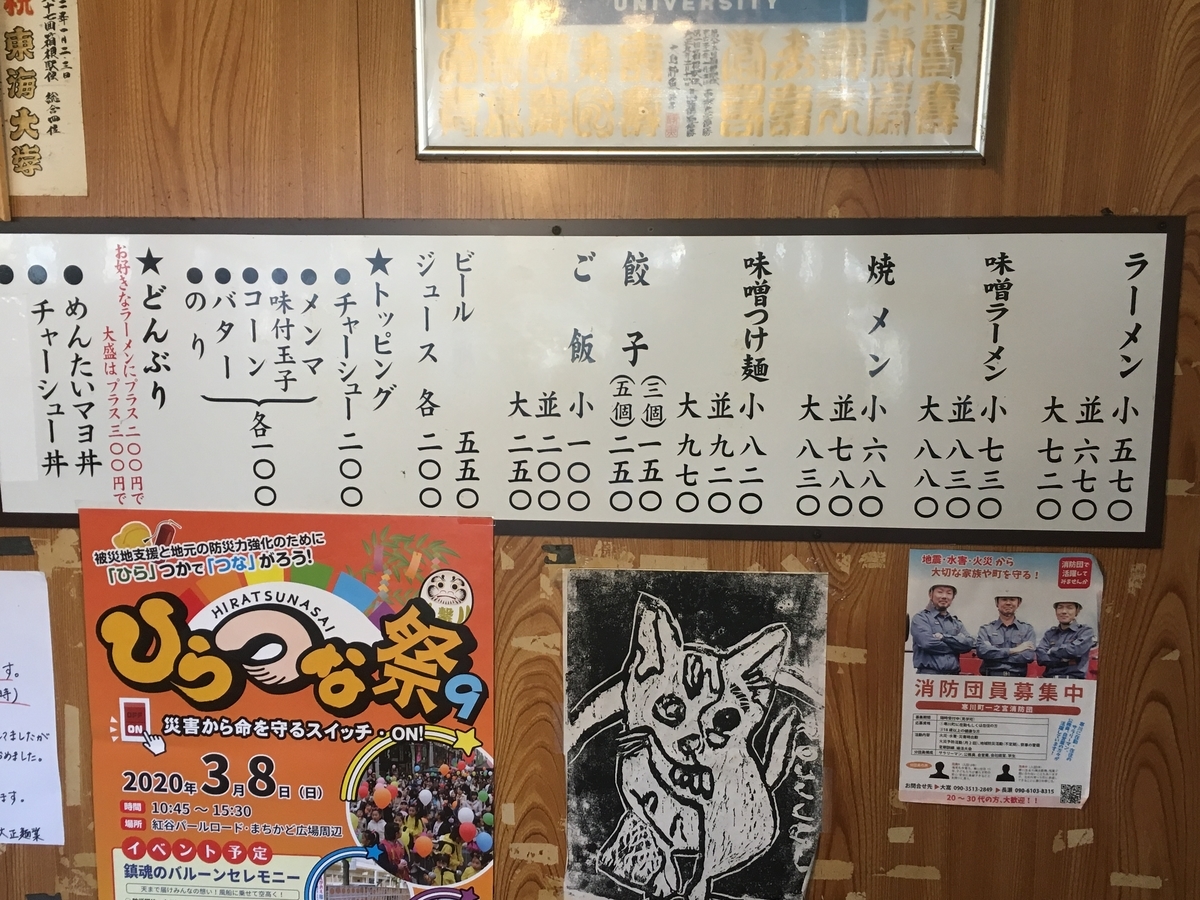 祝
東海大学
総合四位
UNIVERSITY
ラーメン
小 五七〇
並 六七〇
大 七二〇
味噌ラーメン
小 七三〇
並 八三〇
大 八八〇
焼メン
小 六八〇
並 七八〇
大 八三〇
味噌つけ麺
小 八二〇
並 九二〇
大 九七〇
餃子
(三個) 一五〇
(五個) 二五〇
ご飯
小 一〇〇
並 二〇〇
大 二五〇
ビール 五五〇
ジュース 各 二〇〇
★トッピング
●チャーシュー 二〇〇
●メンマ
●味付玉子
●コーン
●バター
●のり
各一〇〇
★どんぶり
お好きなラーメンにプラス二〇〇円で
大盛はプラス三〇〇円で
●めんたいマヨ丼
●チャーシュー丼
被災地支援と地元の防災力強化のために
「ひら」つかで「つな」がろう!
HIRATSUNASAI
ひらつな祭9
ON
災害から命を守るスイッチ・ON!
2020年3月8日(日)
時間 10:45 ～ 15:30
場所 紅谷パールロード・まちかど広場周辺
イベント予定
鎮魂のバルーンセレモニー
天まで届けみんなの想い!風船に乗せて空高く!
地震・水害・火災から
大切な家族や町を守る!
消防団で
活躍して
みませんか
消防団員募集中
寒川町一之宮消防団
お問合せ先 ▶大富 090-3513-2849 ▶長瀬 090-6103-8315
20～30代の方、大歓迎!!
す。
時)
てましたが
めました。
ます。
大正麺業